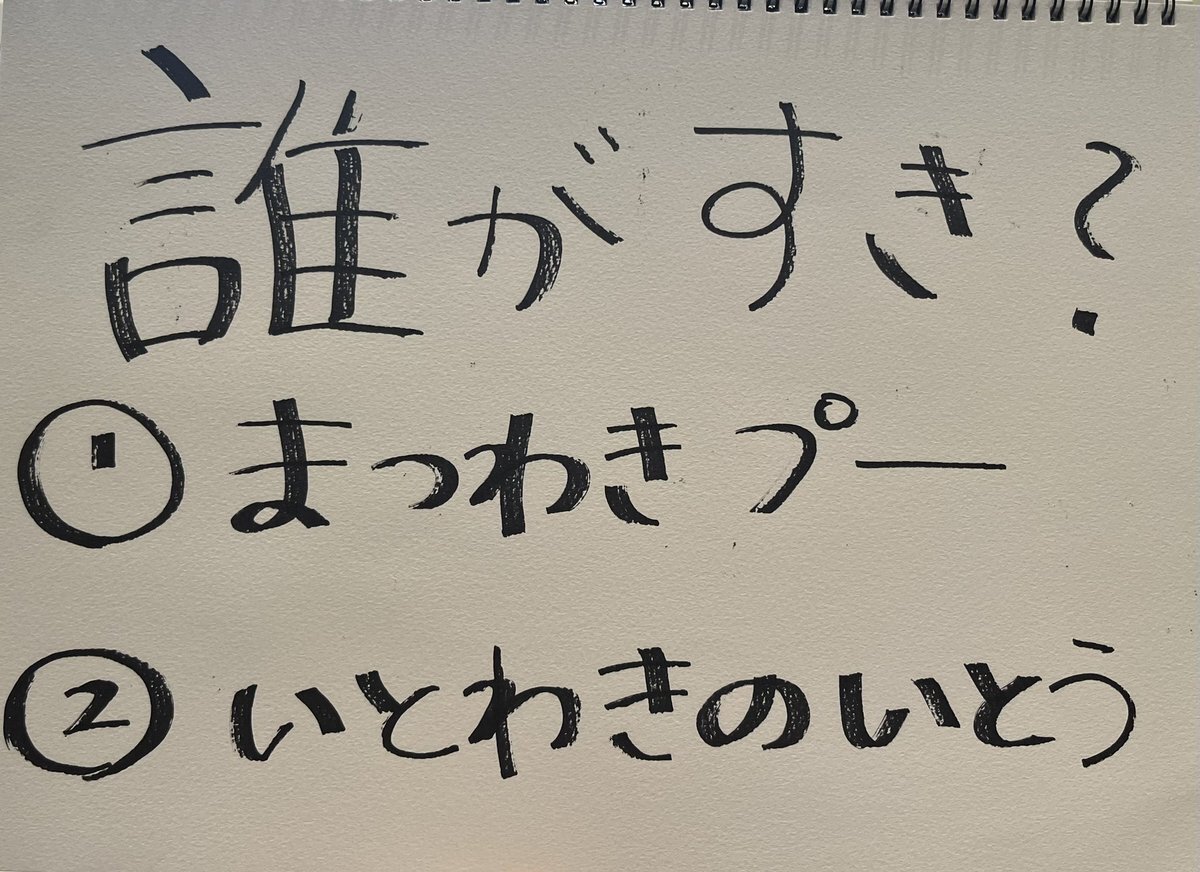 誰がすき?
① まつわきプー
② いとわきのいとう